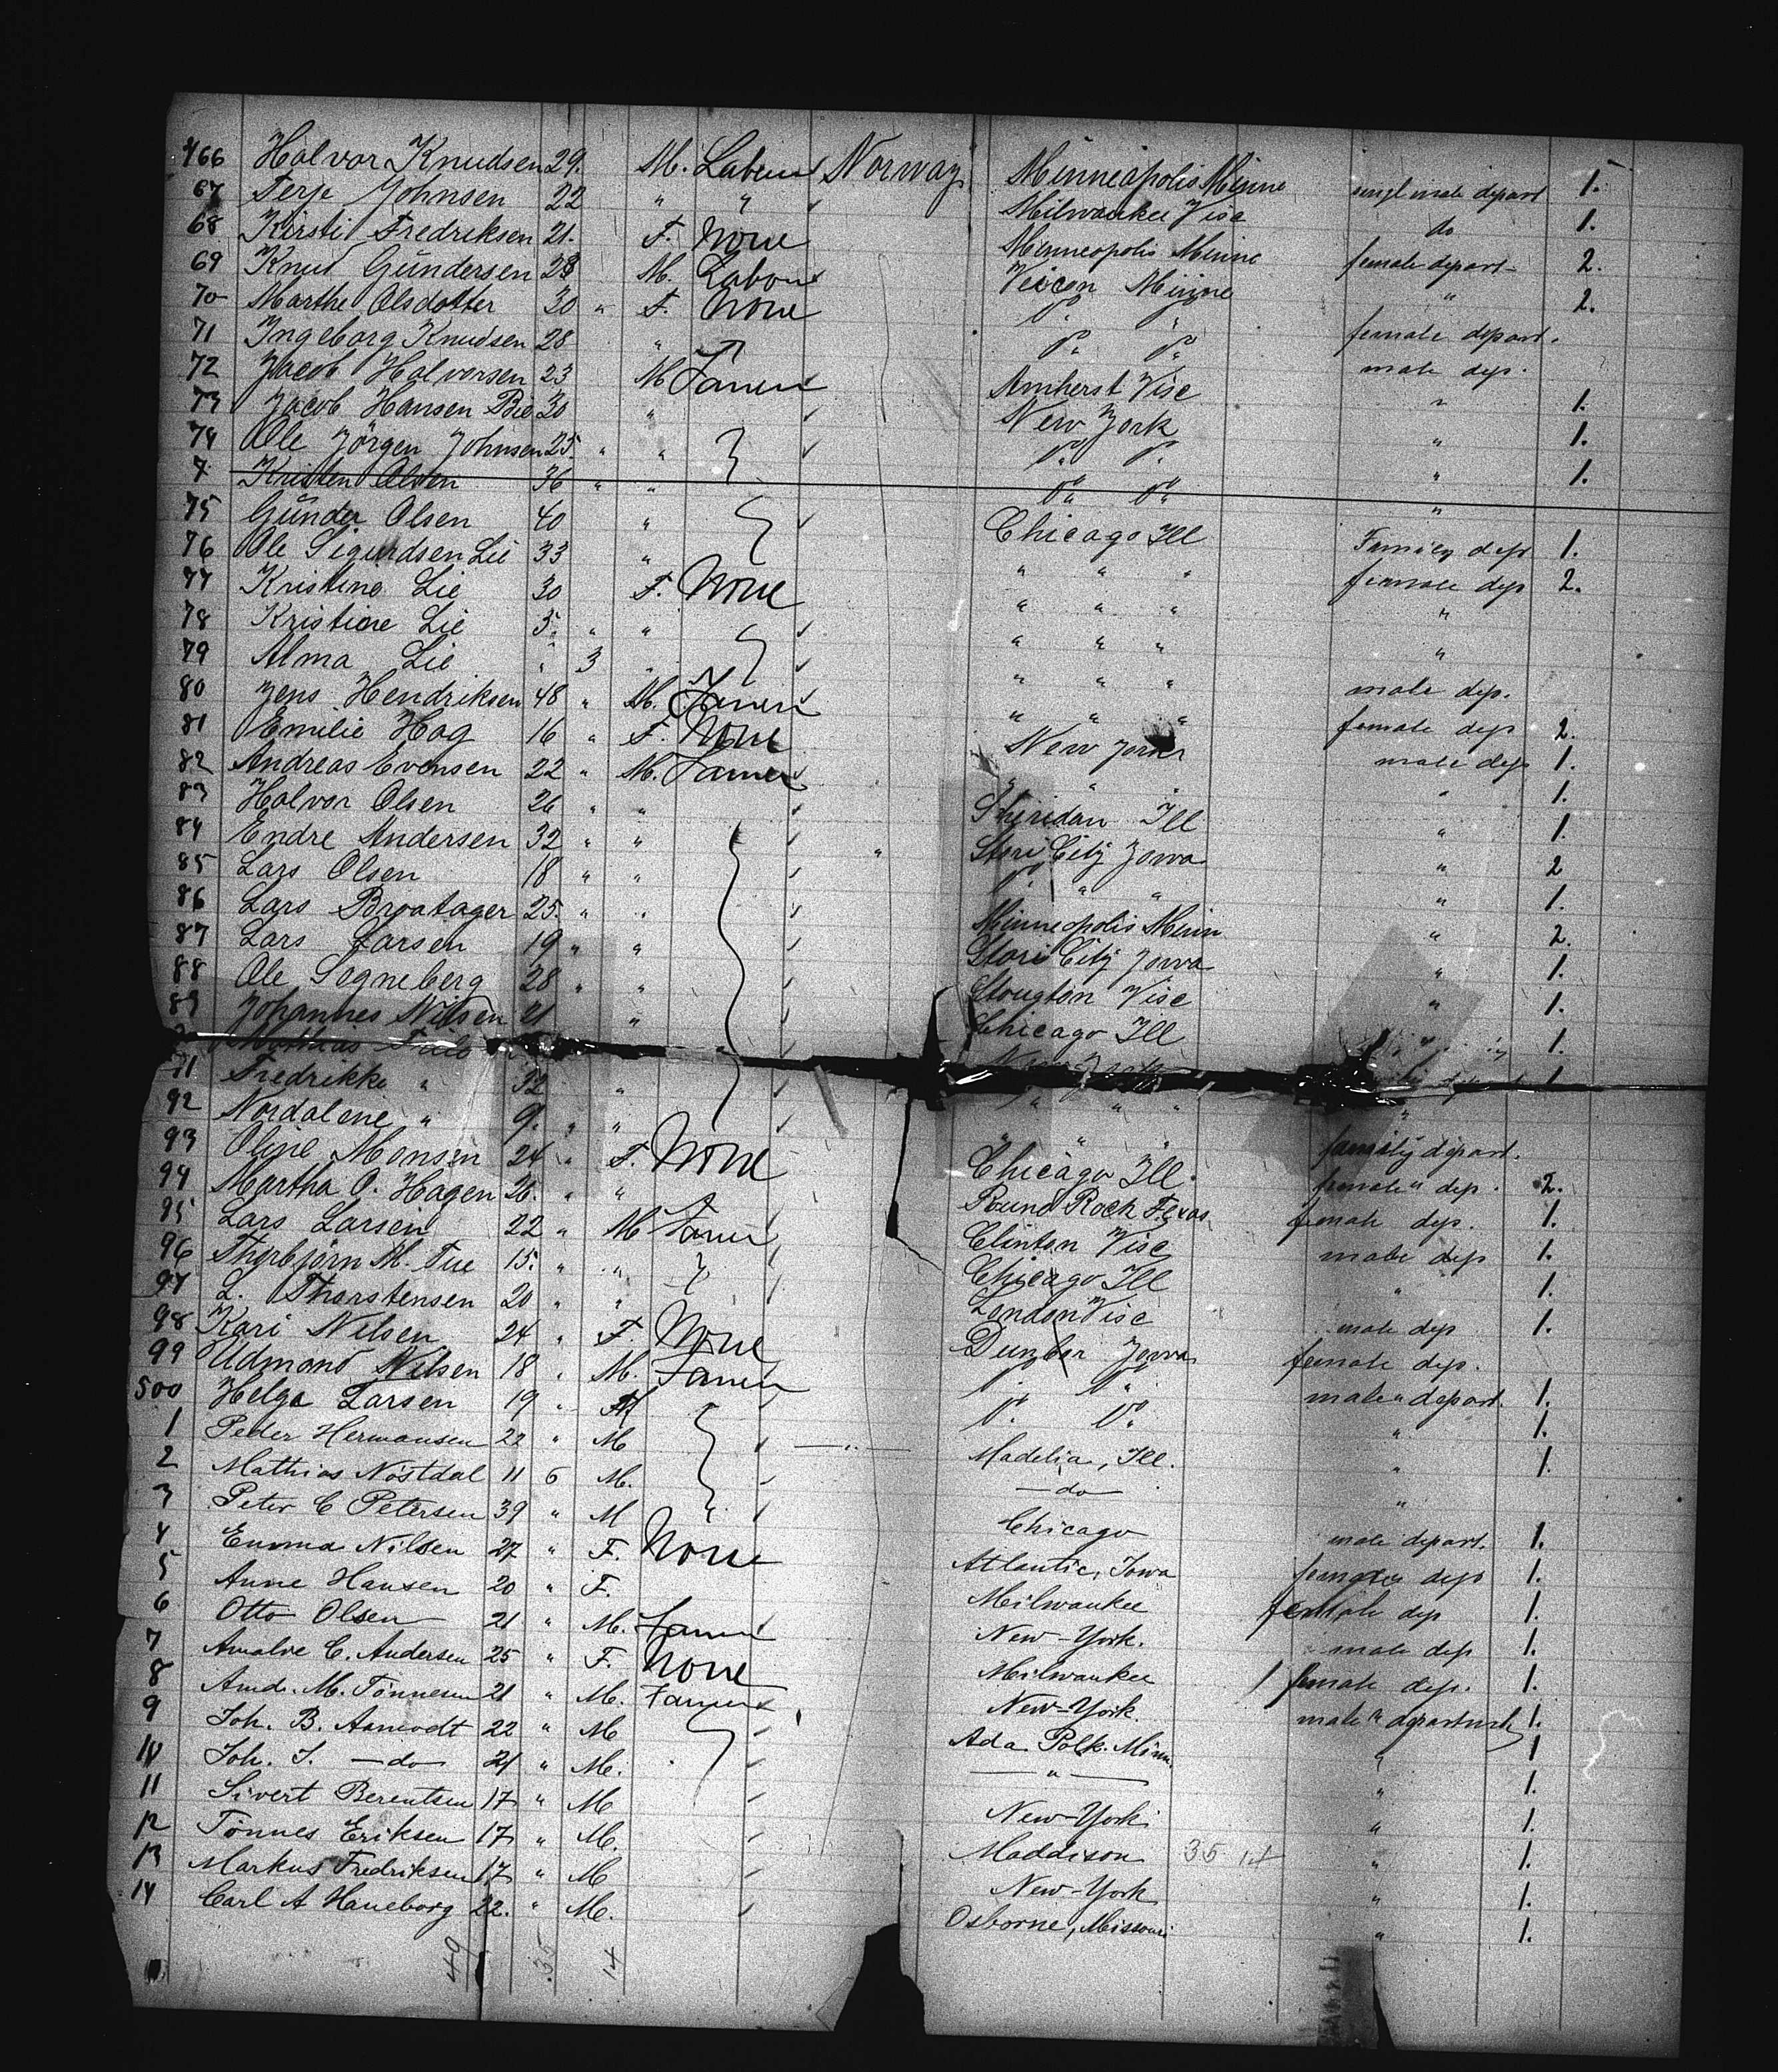 466 Halvor Knudsen 29. M. Labour Norway Minneapolis Minne singl male depart 1.
67 Terje Johnsen 22 " " Milwaukee Visc do 1.
68 Kirsti Fredriksen 21. F. None Minneopolis Minne female depart 2.
69 Knud Gundersen 28 M. Labour Minne " 2.
70 Marthe Olsdotter 30 " F. None D° "
71 Ingeborg Knudsen 28 " D° D° female depart.
72 Jacob Halvorsen 23 M Farmer Amherst Visc male dep.
73 Jacob Hansen Bie 30 " New York " 1.
74 Ole Jörgen Johnsen 25. " " D° D° " 1.
7 Kristen Olsen 36 " " D° D° " 1.
75 Gunder Olsen 40 " Chicago Ill "
76 Ole Sigurdsen Lie 33 " " " " Family dep 1.
77 Kristine Lie 30 F. None " " " female dep 2.
78 Kristine Lie 5. " " " " " "
79 Alma Lie " 3 " " " " "
80 Jens Hendriksen 48 " M. Farmer " " " male dep.
81 Emilie Hag 16 " F. None New York female dep 2.
82 Andreas Evensen 22 " M. Farmer " " male dep 1.
83 Halvor Olsen 26 " " Sheridan Ill " 1.
84 Endre Andersen 32 " " " Stori City Jowa " 1.
85 Lars Olsen 18 " " " " " 2
86 Lars Broatager 25. " " Minneopolis Minn " 1.
87 Lars Larsen 19 " " Stori City Jowa " 2.
88 Ole Sogneberg 28 " " Stougton Visc " 1.
89 Johannes Nilsen 21 " Chicago Ill " 1.
Mathias 1.
91 Fredrikke " 32 " " " " 1
92 Nordalene " 9. " " " " "
93 Oline Monsen 24 " F. None Chicago Ill. family depart.
94 Martha O. Hagen 26. " " Round Rock Texas female dep. 2.
95 Lars Larsen 22 " M Farmer Clinton Visc female dep. 1.
96 Thorbjörn M. Tue 15. " " Chicago Ill male dep 1.
97 L. Thorstensen 20 " " London Visc " 1.
98 Kari Nilsen 24 " F. None Dunbar Jowa male dep 1.
99 Udmond Nilsen 18 " M. Farmer D° D° female dep.
500 Helge Larsen 19 " M D° D° male depart. 1.
1 Peder Hermansen 22 " M — " — Madelia, Ill. " 1.
2 Mathias Nöstdal 11 6 M. — do — " 1.
3 Peter C Petersen 39 " M " Chicago "
4 Emma Nilsen 27 " F. None Atlantic, Iowa male depart. 1.
5 Anne Hansen 20 " F. Milwaukee female dep 1.
6 Otto Olsen 21 " M. Farmer New-York. female dep 1.
7 Amalie C. Andersen 25 " F. None Milwaukee male dep 1.
8 Arnd. M. Tönnesen 21 " M. Farmer New-York. female dep. 1.
9 Joh. B. Aamodt 22 " M Ada Polk. Minn. male departure 1.
10 Joh. J. — do 21 " M. — " — " 1
11 Sivert Berentsen 17 " M New-York " 1.
12 Tönnes Eriksen 17 " M. Maddison 35 14 " 1.
13 Markus Fredriksen 17 " M New-York " 1.
14 Carl A Haneborg 22. " M. Osborne, Missouri " 1.
1.
49 35 14